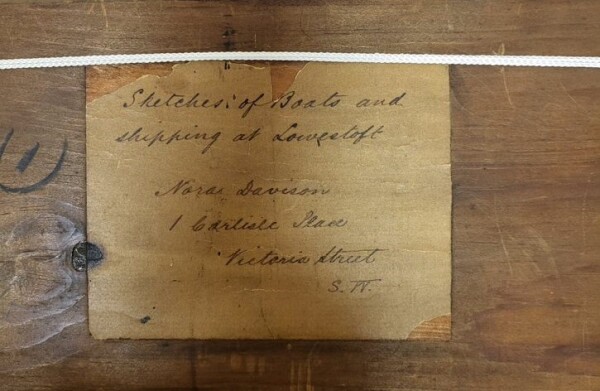 Sketches: of Boats and
shipping at Lowestoft
Nora Davison
1 Carlisle Place
Victoria Street
S.W.
1